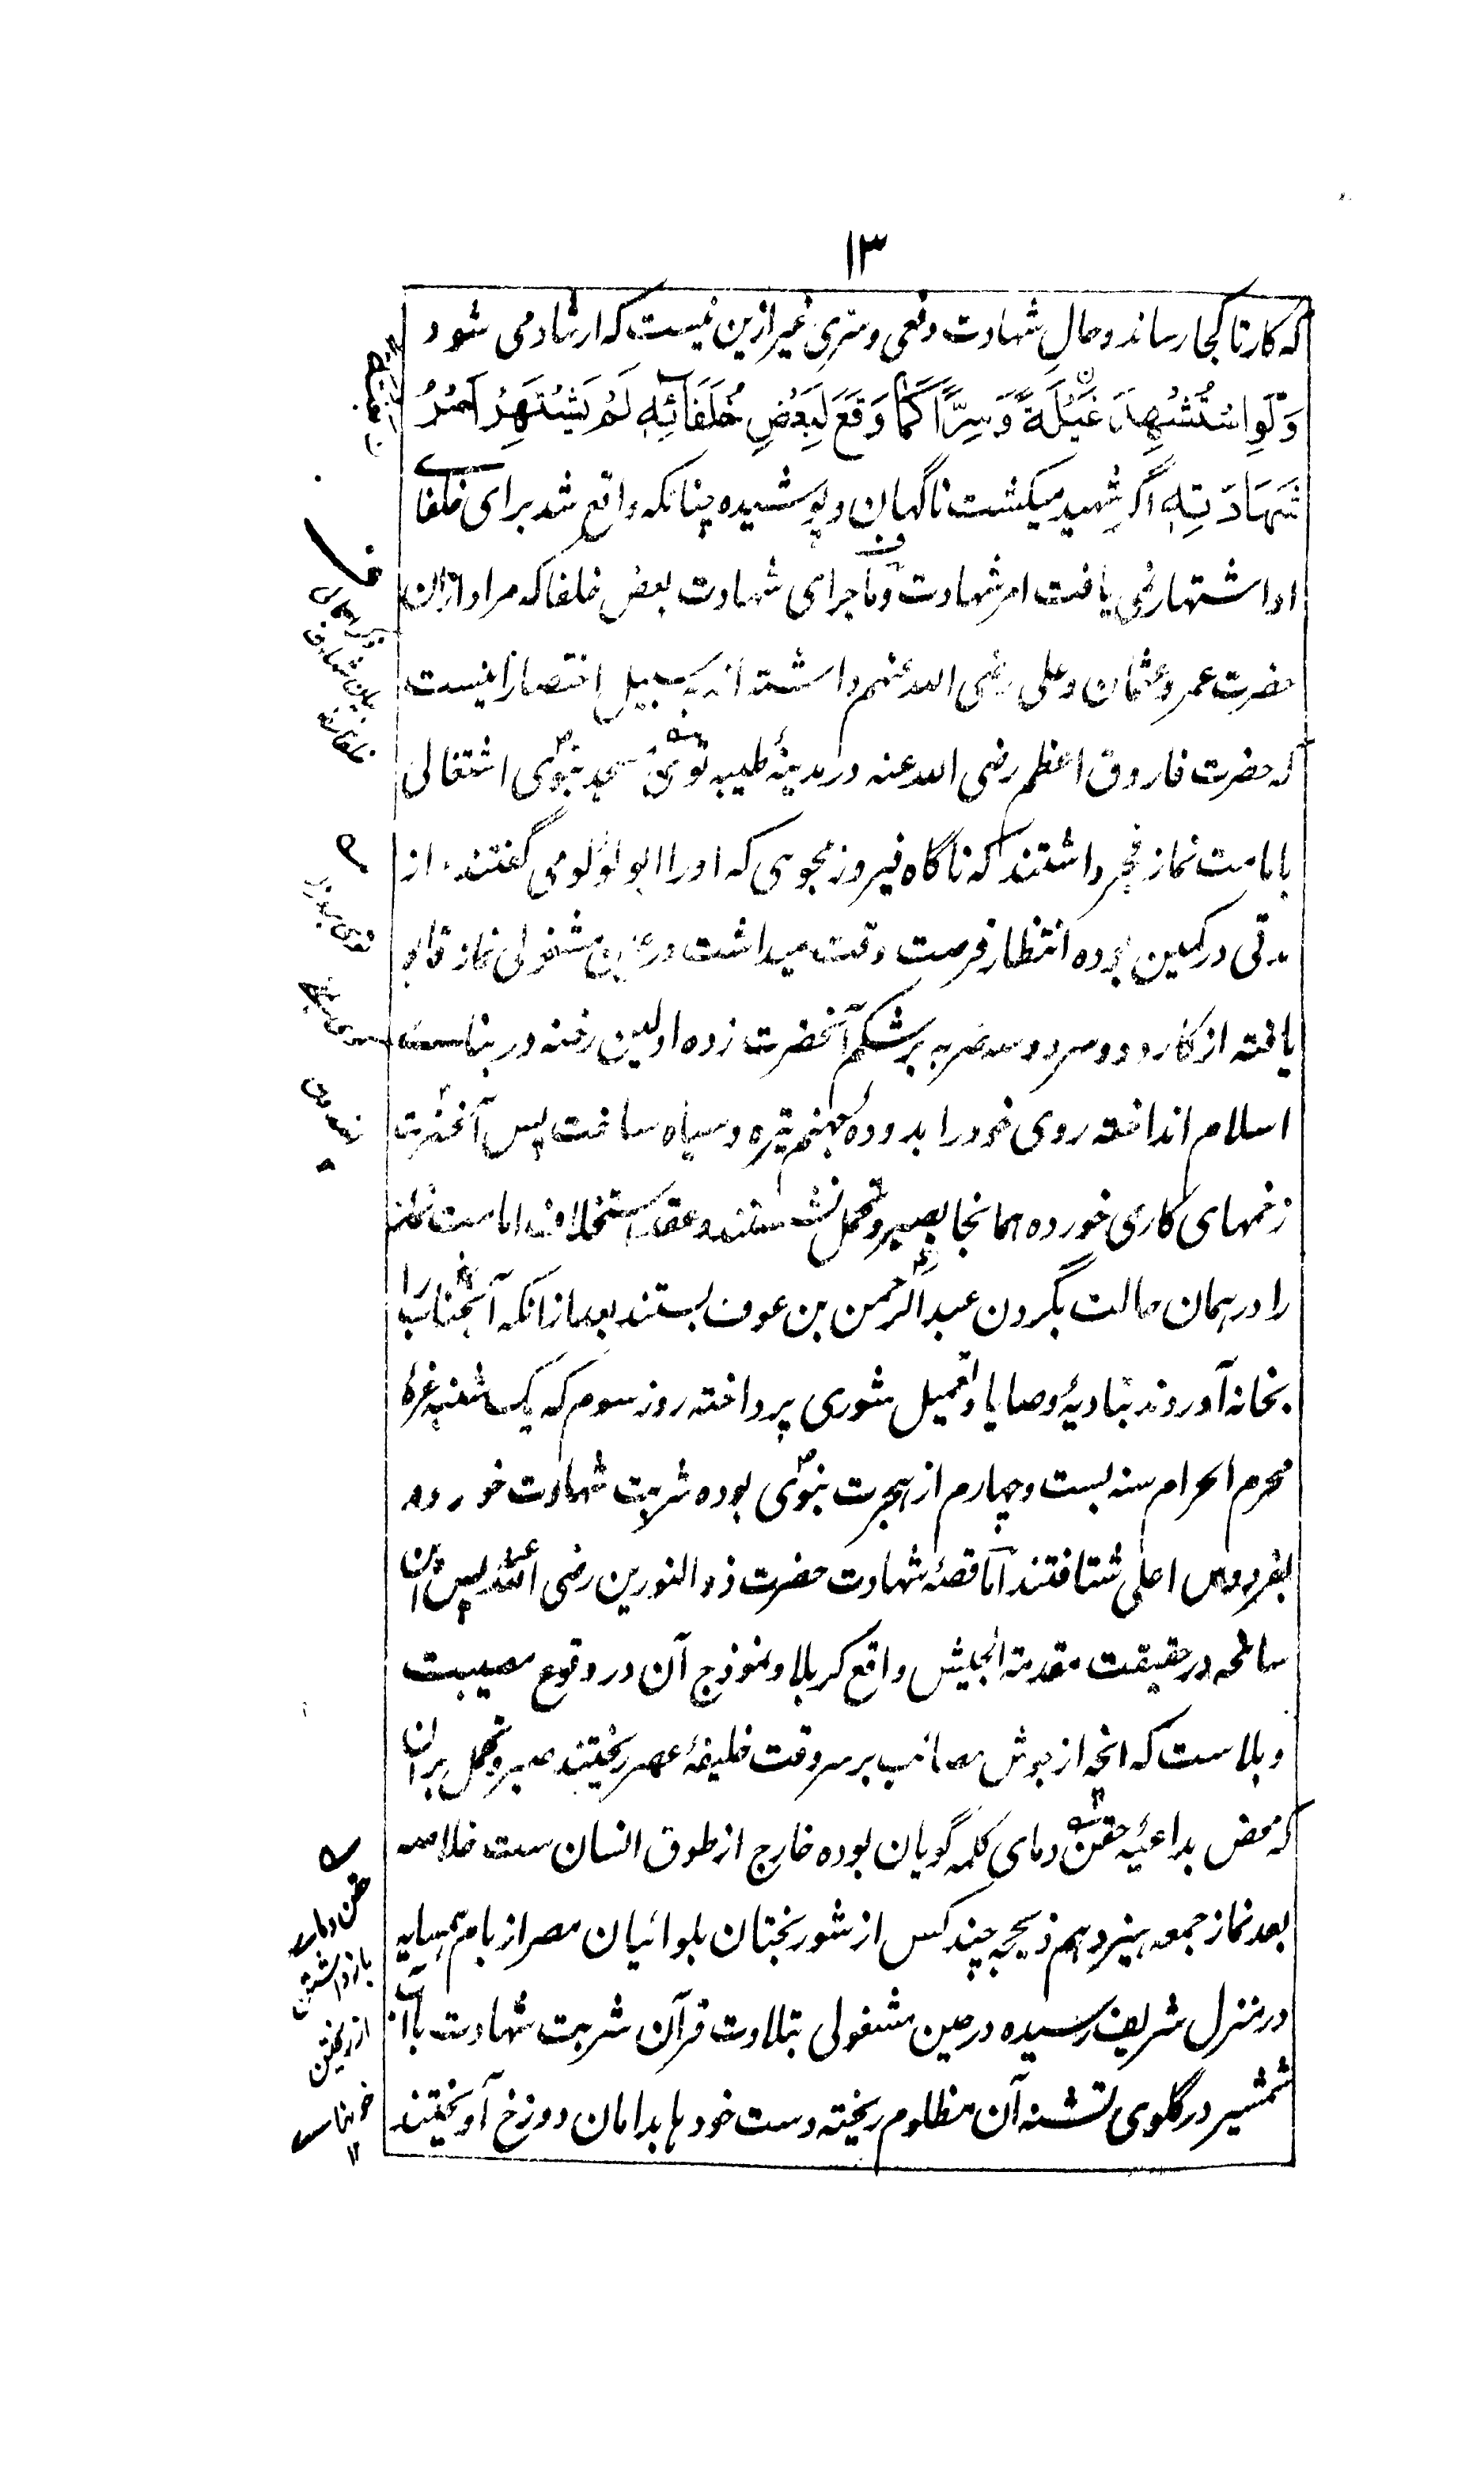 ۱۳
که کار تا کجا رساند و حالِ شهادت دفعی و سرّی غیر ازین نیست که ارشاد می شود
وَلَوِ اسْتُشْهِدَ غَيْلَةً وَّسِرًّا كَمَا وَقَعَ لِبَعْضِ خُلَفَائِهٖ لَمْ يَشْتَهِرْ اَمْرُ
شَهَادَتِهٖ اگر شهید میگشت ناگهان و پوشیده چنانکه واقع شد برای خلفای
او اشتهار نمی یافت امر شهادت و ماجرای شهادت بعض خلفا که مراد ازان
حضرت عمر و عثمان و علی رضی الله عنهم داشته اند بسبیل اختصار اینست
که حضرت فاروق اعظم رضی الله عنه در مدینهٔ طیبه مسجد نبوی اشتغالی
بامامت نماز فجر داشتند که ناگاه فیروز مجوسی که او را ابو لؤلؤ می گفتند از
مدتی در کمین بوده انتظار فرصت وقت میداشت در عین مشغولی نماز قابو
یافته از کارد دو سر دو سه ضربه بر شکم آنحضرت زده اولین رخنه در بنای
اسلام انداخته روی خود را بدوده جهنم تیره و سیاه ساخت پس آنحضرت
زخمهای کاری خورده همانجا بصبر و تحمل نشستند و عقد استخلاف امامت نماز
را در همان حالت بگردن عبد الرحمن بن عوف بستند بعد ازانکه آنجناب را
بخانه آوردند بتادیهٔ وصایا و تعمیل شوری پرداخته روز سوم که یکشنبه غرهٔ
محرم الحرام سنه بست و چهارم از هجرت نبوی بوده شربت شهادت خورده
بفردوس اعلی شتافتند اما قصهٔ شهادت حضرت ذو النورین رضی الله عنه پس این
سانحه در حقیقت مقدمة الجیش واقع کربلا و نموذج آن در وقوع مصیبت
و بلاست که انچه از جوش مصائب بر سر وقت خلیفهٔ عصر ریختند صبر و تحمل بران
که محض بداعیهٔ حقن دمای کلمه گویان بوده خارج از طوق انسان ست خلاصه
بعد نماز جمعه هیزدهم ذیحجه چند کس از شور بختان بلوائیان مصر از بام همسایه
در منزل شریف رسیده در عین مشغولی بتلاوت قرآن شربت شهادت بآب
شمشیر در گلوی تشنه آن مظلوم ریخته دست خود ها بدامان دوزخ آویختند
بیان شهادت
خلفا
حقن دماء
باز داشتن
از ریختن
خونهاست
۱۲